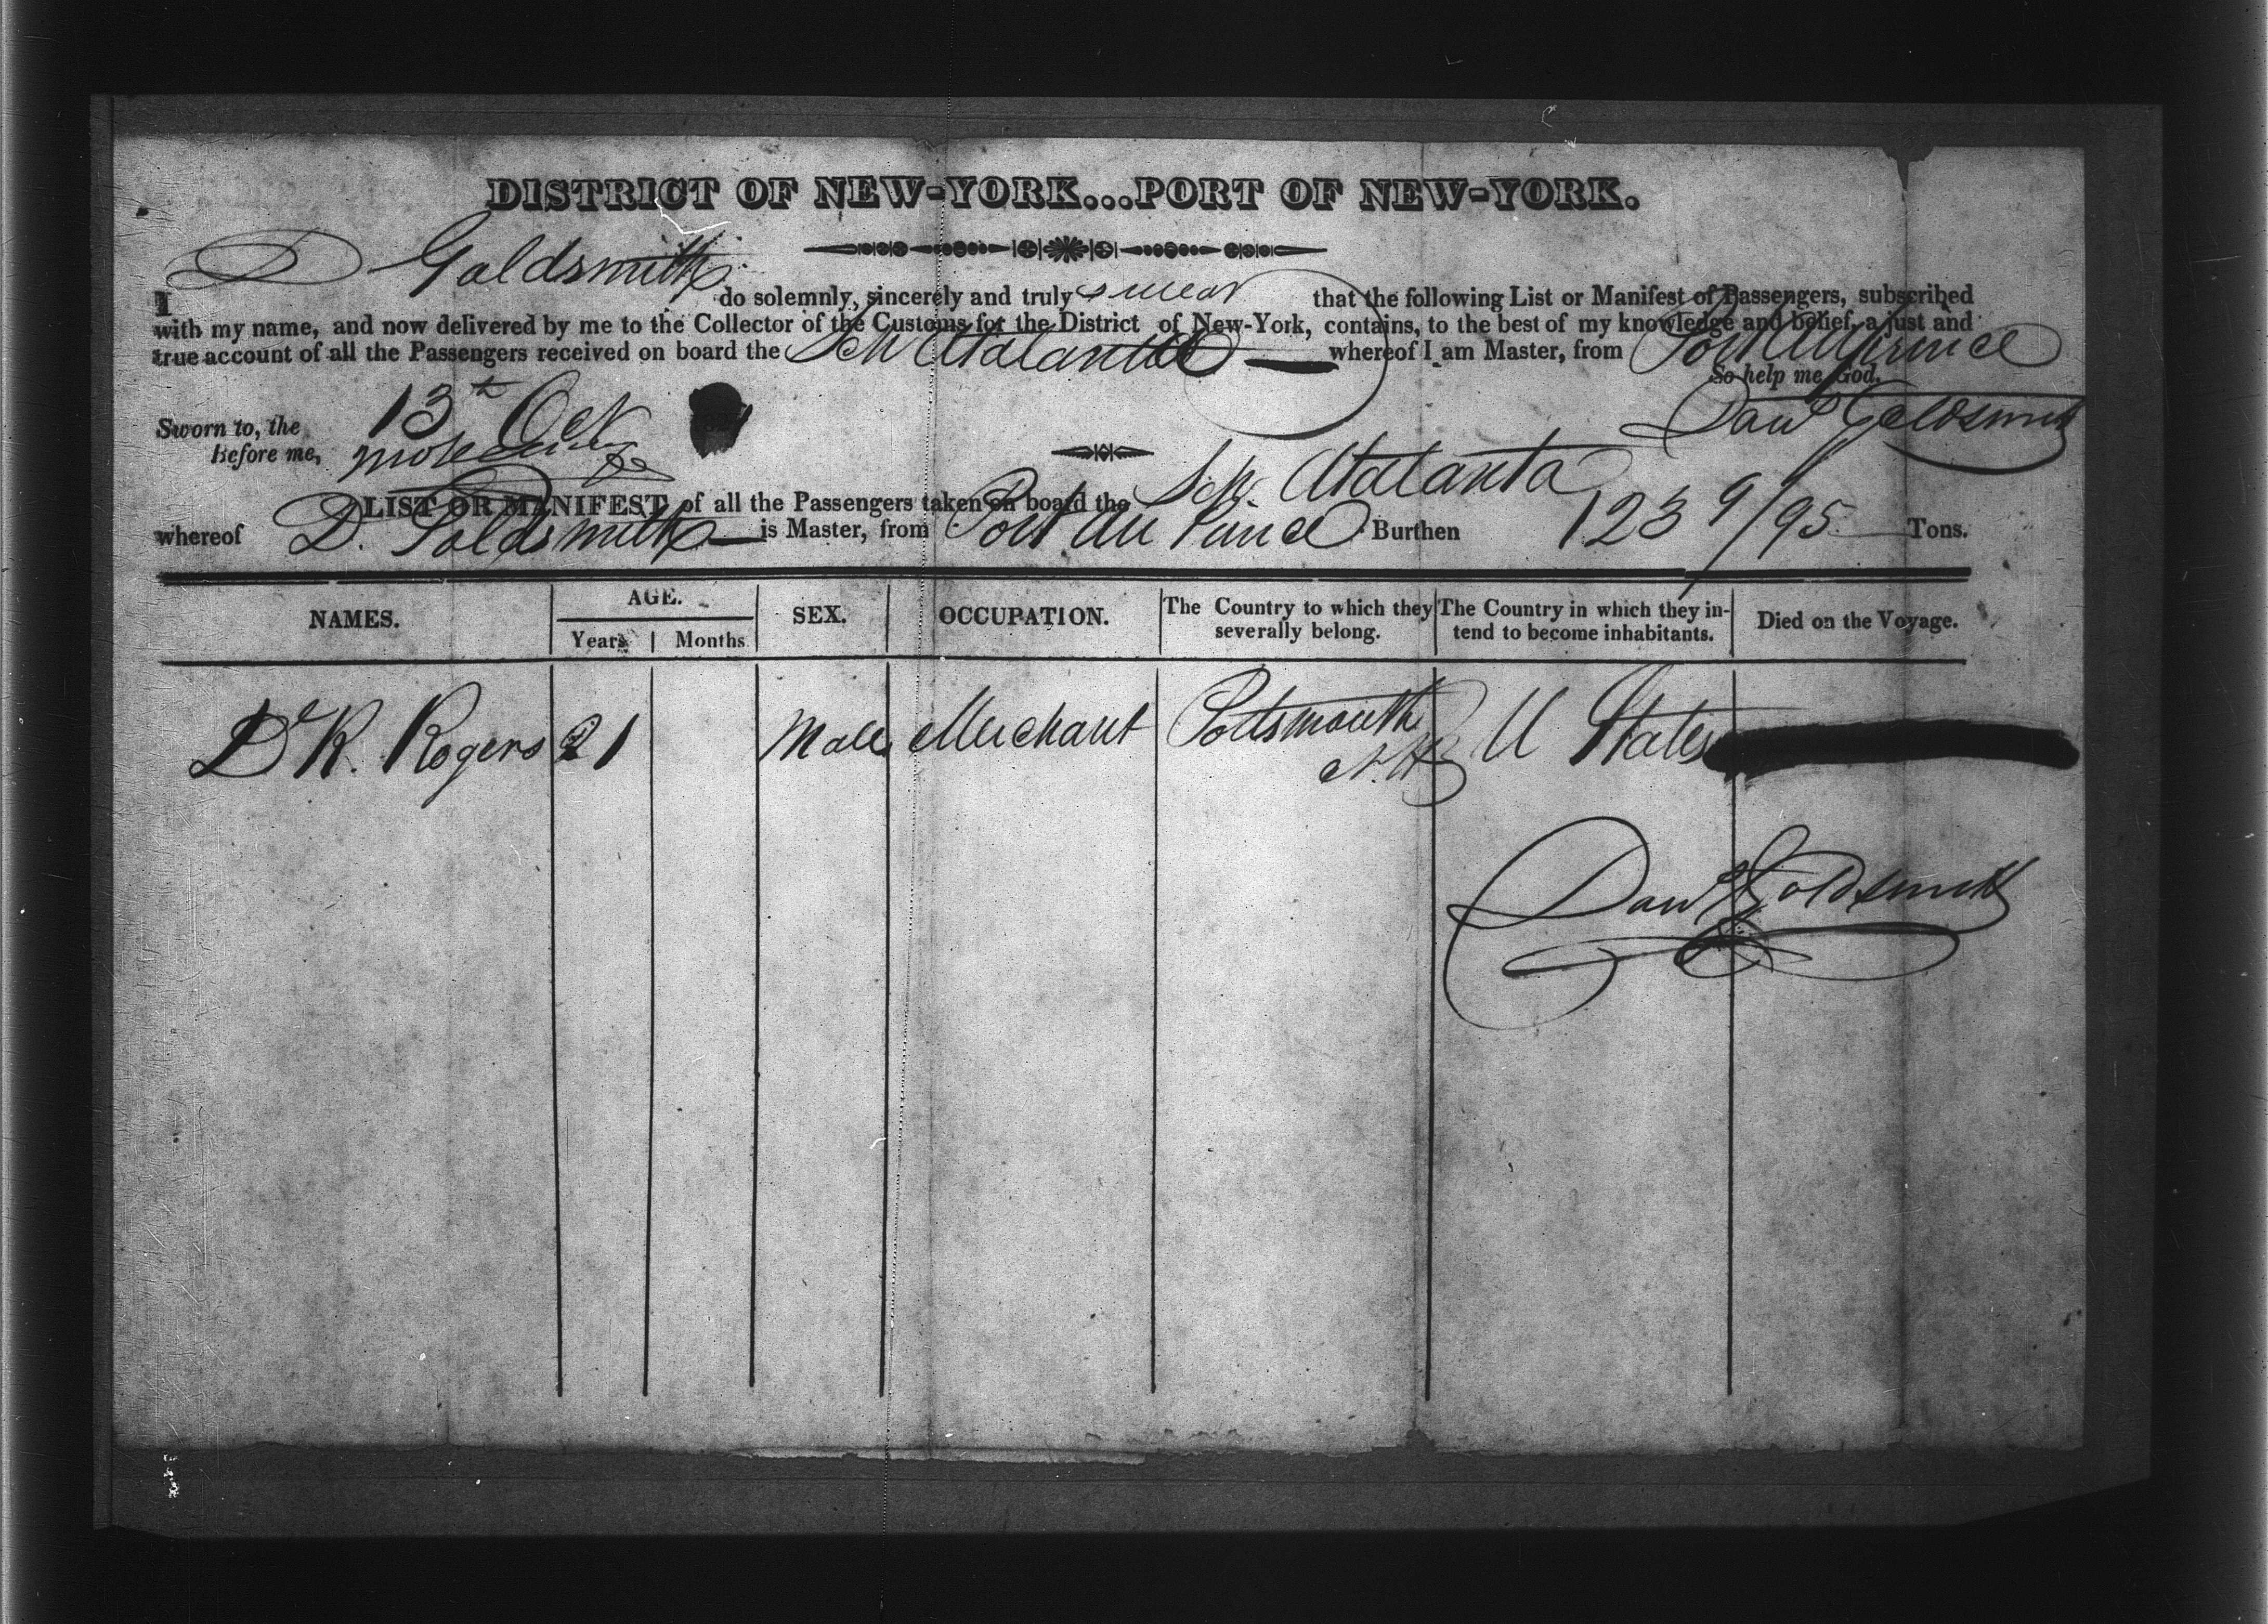 DISTRICT OF NEW-YORK...PORT OF NEW-YORK.
I D Goldsmith do solemnly, sincerely and truly swear that the following List or Manifest of Passengers, subscribed
with my name, and now delivered by me to the Collector of the Customs for the District of New-York, contains, to the best of my knowledge and belief, a just and
true account of all the Passengers received on board the Sch Atalanta whereof I am Master, from Port au Prince
So help me God.
Sworn to, the 13th Oct
Danl Goldsmith
Before me,
LIST OR MANIFEST of all the Passengers taken on board the Sch. Atalanta
whereof D. Goldsmith is Master, from Port au Prince Burthen 123 9/95 Tons.
NAMES. AGE. SEX. OCCUPATION. The Country to which they severally belong. The Country in which they intend to become inhabitants. Died on the Voyage.
Years Months
Dr R. Rogers 21 Male Merchant Portsmouth N.H. U States
Danl Goldsmith